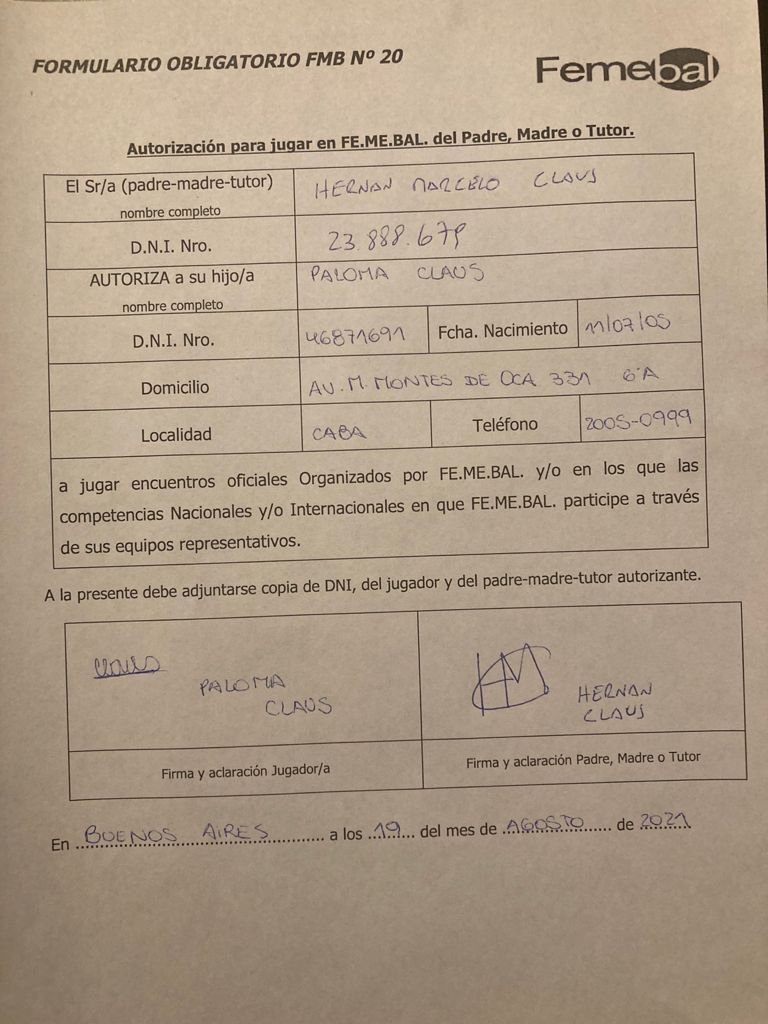 FORMULARIO OBLIGATORIO FMB Nº 20
Femebal
Autorización para jugar en FE.ME.BAL. del Padre, Madre o Tutor.
El Sr/a (padre-madre-tutor) nombre completo
HERNAN MARCELO CLAUS
D.N.I. Nro.
23.888.679
AUTORIZA a su hijo/a nombre completo
PALOMA CLAUS
D.N.I. Nro.
46871691
Fcha. Nacimiento
11/07/05
Domicilio
AV. M. MONTES DE OCA 331 6°A
Localidad
CABA
Teléfono
2005-0999
a jugar encuentros oficiales Organizados por FE.ME.BAL. y/o en los que las
competencias Nacionales y/o Internacionales en que FE.ME.BAL. participe a través
de sus equipos representativos.
A la presente debe adjuntarse copia de DNI, del jugador y del padre-madre-tutor autorizante.
Claus
PALOMA
CLAUS
HERNAN
CLAUS
Firma y aclaración Jugador/a
Firma y aclaración Padre, Madre o Tutor
En BUENOS AIRES a los 19 del mes de AGOSTO de 2021